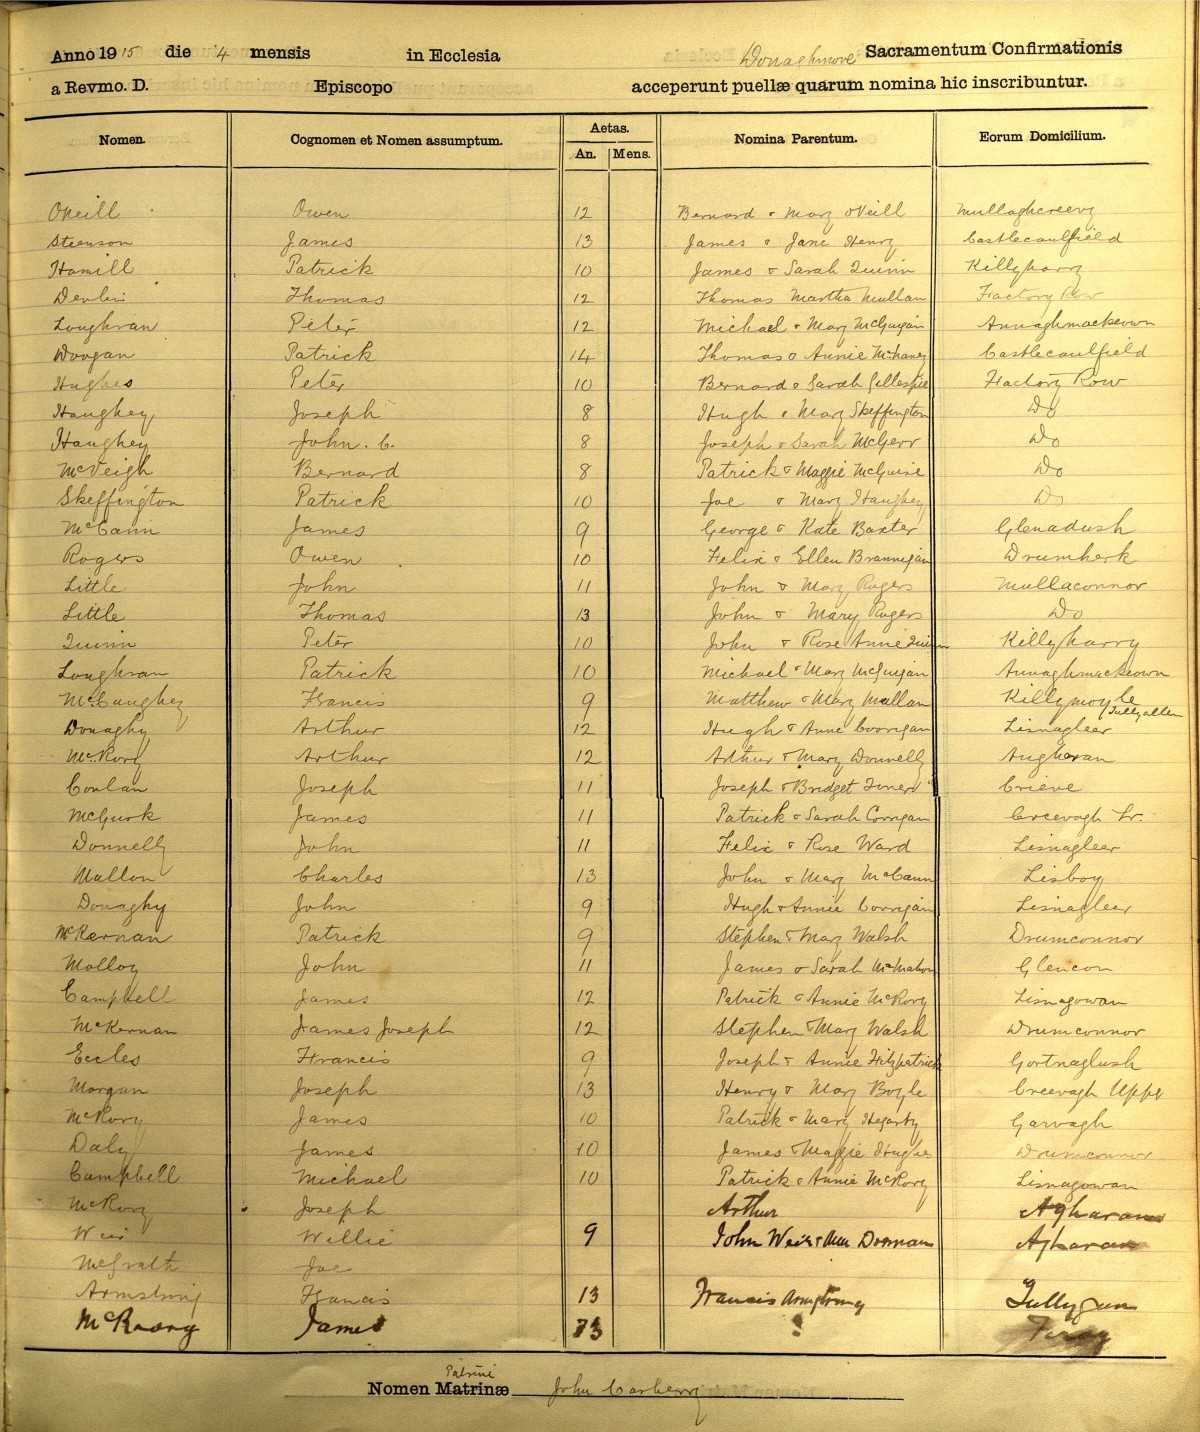 Anno 1915 die 4 mensis in Ecclesia Donaghmore Sacramentum Confirmationis
a Revmo. D. Episcopo acceperunt puellæ quarum nomina hic inscribuntur.
Nomen. Cognomen et Nomen assumptum. Aetas. Nomina Parentum. Eorum Domicilium.
An. Mens.
O'Neill Owen 12 Bernard & Mary O'Neill Mullaghcreevy
Steenson James 13 James & Jane Henry Castlecaulfield
Hamill Patrick 10 James & Sarah Quinn Killyharry
Devlin Thomas 12 Thomas Martha Mullan Factory Row
Loughran Peter 12 Michael & Mary McGuigan Annaghmackeown
Woogan Patrick 14 Thomas & Annie Castlecaulfield
Hughes Peter 10 Bernard & Sarah Gillespie Factory Row
Haughey Joseph 8 Hugh & Mary Skeffington Do
Haughey John. C. 8 Joseph & Sarah McGerr Do
McVeigh Bernard 8 Patrick & Maggie McGuire Do
Skeffington Patrick 10 Joe & Mary Haughey Do
McCann James 9 George & Kate Baxter Glenadush
Rogers Owen 10 Felix & Ellen Brannigan Drumherk
Little John 11 John & Mary Rogers Mullaconnor
Little Thomas 13 John & Mary Rogers Do
Quinn Peter 10 John & Rose Anne Quinn Killyharry
Loughran Patrick 10 Michael & Mary McGuigan Annaghmackeown
McCaughey Francis 9 Matthew & Mary Mallan Killymoyle
Tullyallen
Donaghy Arthur 12 Hugh & Anne Corrigan Lisnagleer
McRory Arthur 12 Arthur & Mary Donnelly Augheran
Conlan Joseph 11 Joseph & Bridget Crieve
McGurk James 11 Patrick & Sarah Corrigan Creevagh Lr.
Donnelly John 11 Felix & Rose Ward Lisnagleer
Mallon Charles 13 John & Mary McCann Lisboy
Donaghy John 9 Hugh & Annie Corrigan Lisnagleer
McKernan Patrick 9 Stephen & Mary Walsh Drumconnor
Molloy John 11 James & Sarah McMahon Glencon
Campbell James 12 Patrick & Annie McRory Lisnagowan
McKernan James Joseph 12 Stephen & Mary Walsh Drumconnor
Eccles Francis 9 Joseph & Annie Fitzpatrick Gortnaglush
Morgan Joseph 13 Henry & Mary Boyle Creevagh Uppr
McRory James 10 Patrick & Mary Hegarty Garvagh
Daly James 10 James & Maggie Hughes Drumconnor
Campbell Michael 10 Patrick & Annie McRory Lisnagowan
McRory Joseph Arthur Agharan
Weir Willie 9 John Weir & Ann Donnan Agharan
McGrath Joe
Armstrong Francis 13 Francis Armstrong Tullygun
McRoory James 13
Patrini
Nomen Matrinæ John Carberry